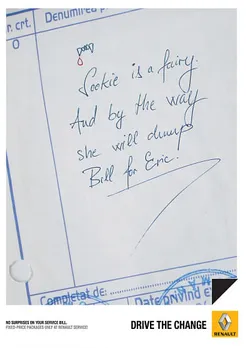 r. crt.
Denumirea p
Sookie is a fairy.
And by the way
she will dump
Bill for Eric.
Completat de:
Data privind e
NO SURPRISES ON YOUR SERVICE BILL.
FIXED-PRICE PACKAGES ONLY AT RENAULT SERVICES
DRIVE THE CHANGE
RENAULT